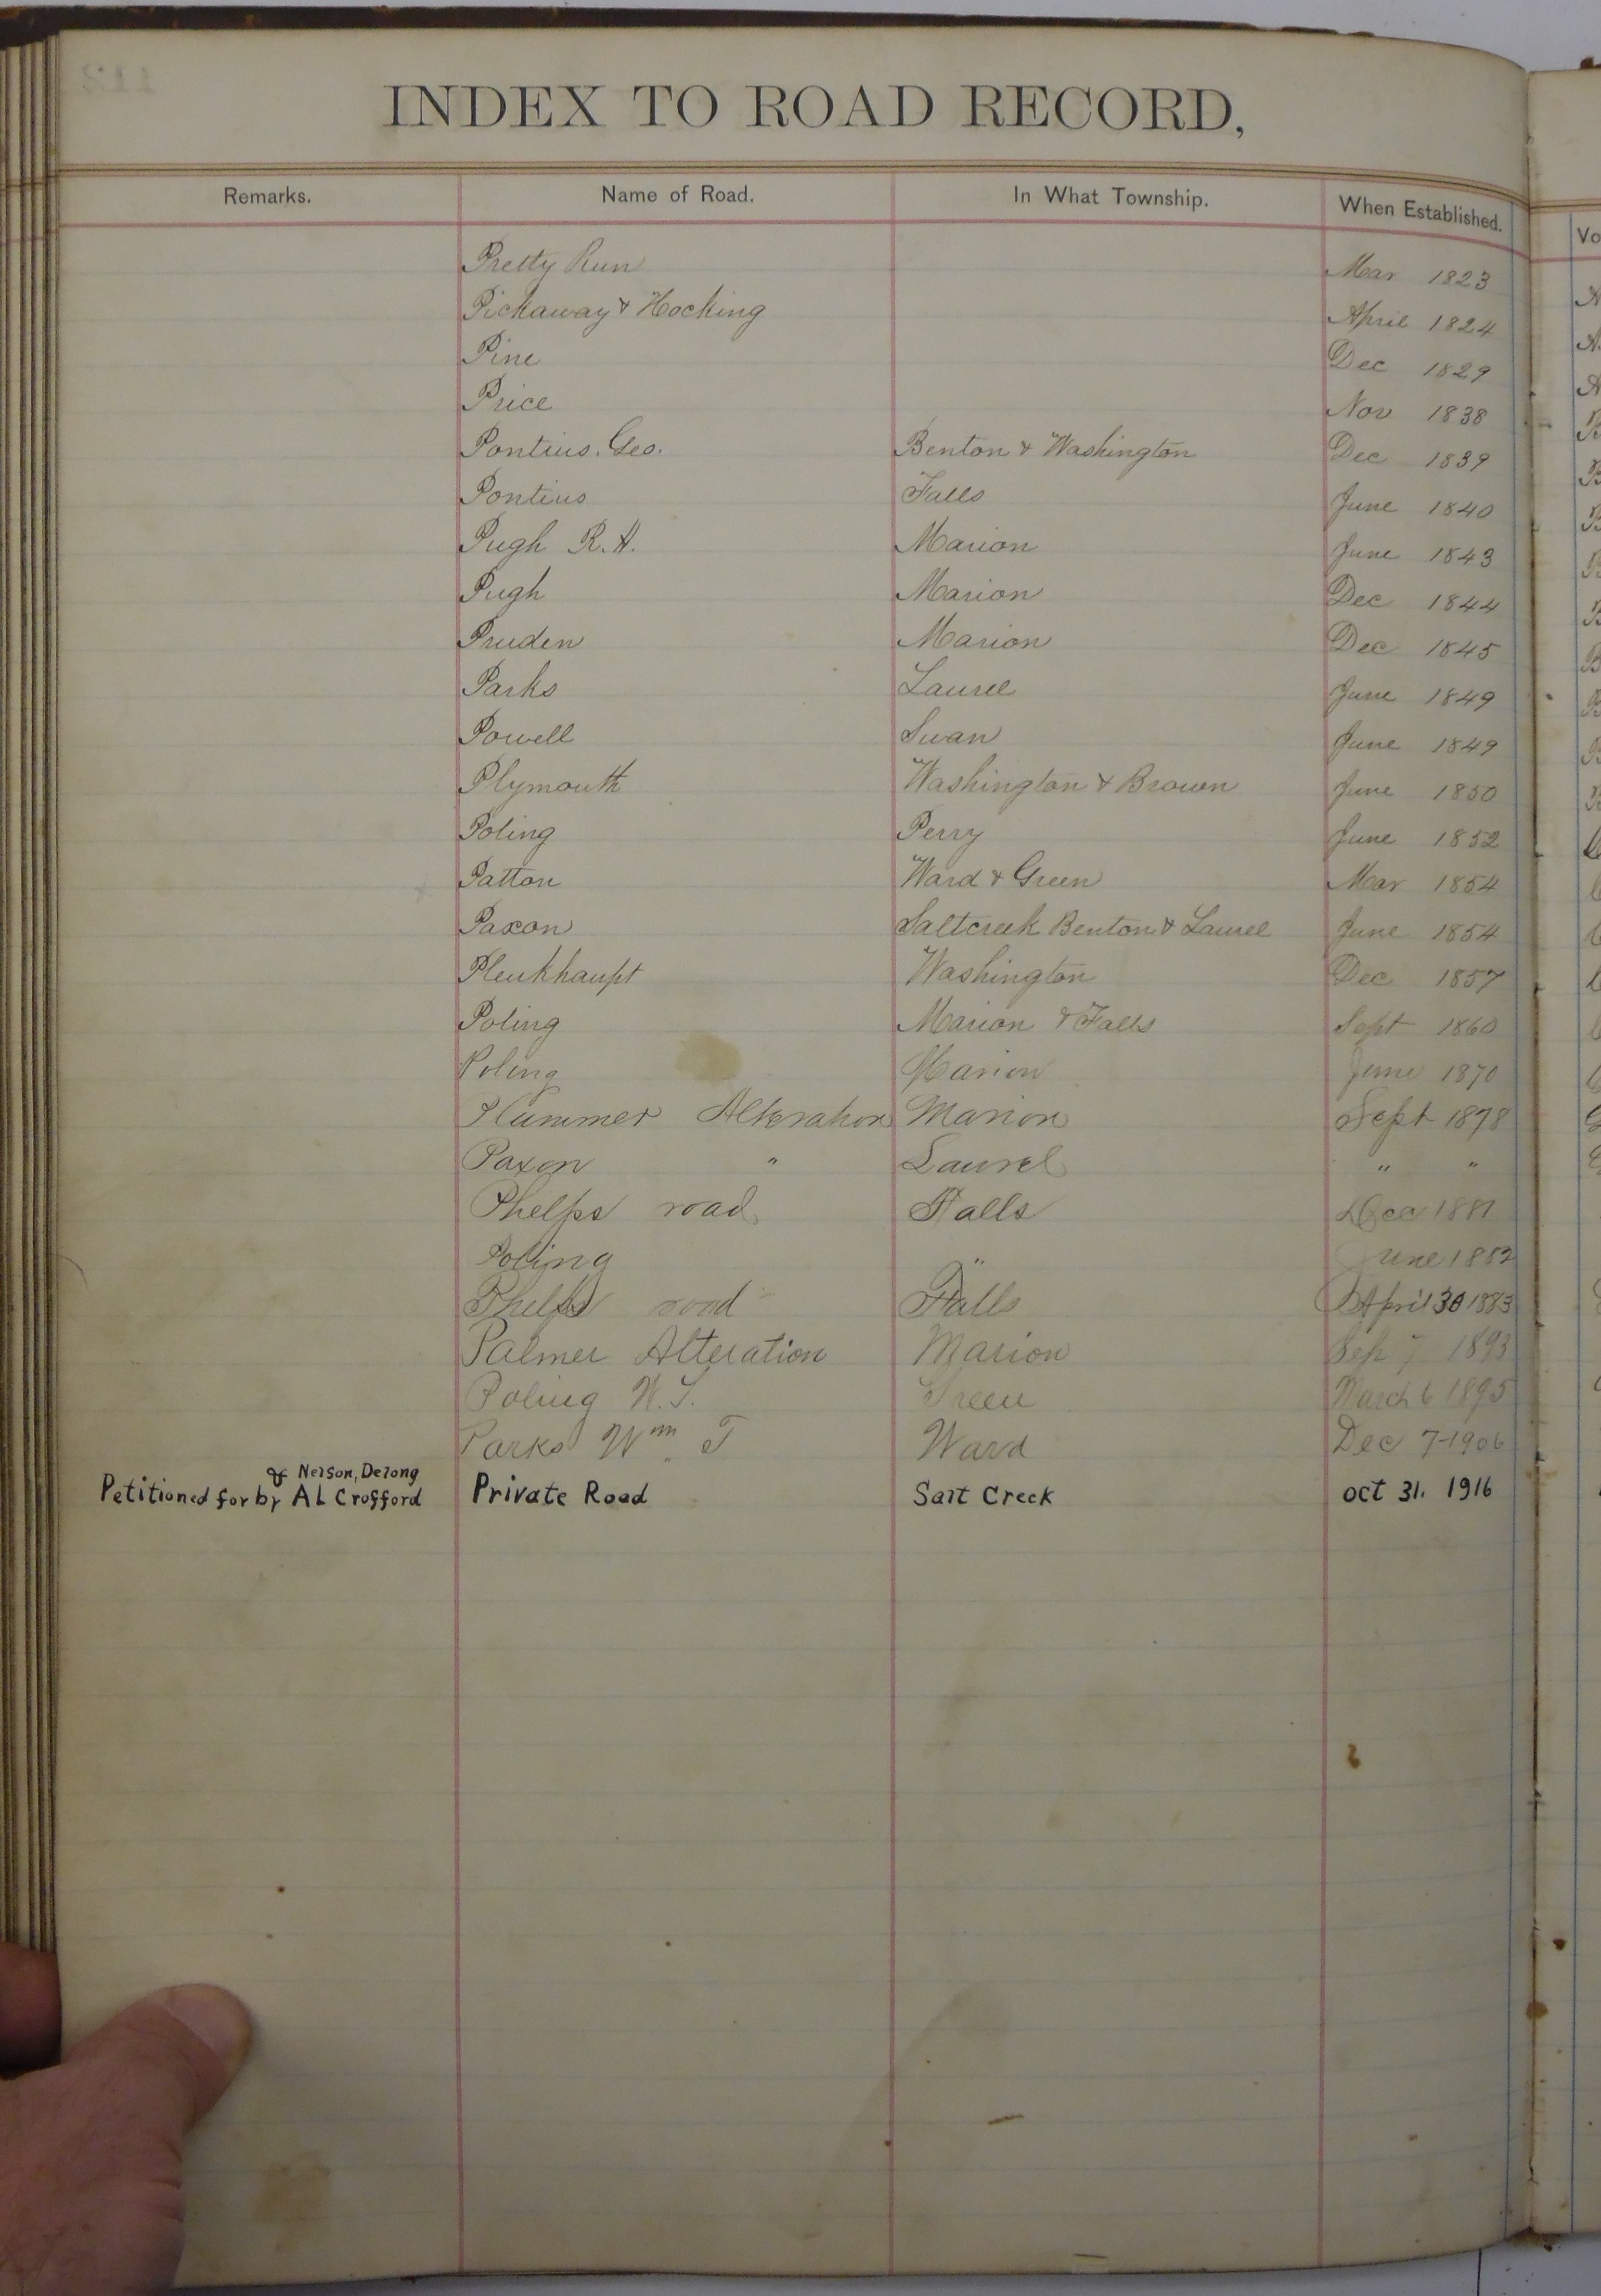 INDEX TO ROAD RECORD,
Remarks. Name of Road. In What Township. When Established.
Pretty Run Mar 1823
Pickaway & Hocking April 1824
Pine Dec 1829
Price Nov 1838
Pontius. Geo. Benton & Washington Dec 1839
Pontius Falls June 1840
Pugh R. H. Marion June 1843
Pugh Marion Dec 1844
Pruden Marion Dec 1845
Parks Laurel June 1849
Powell Swan June 1849
Plymouth Washington & Brown June 1850
Poling Perry June 1852
Patton Ward & Green Mar 1854
Paxon Saltcreek Benton & Laurel June 1854
Pleukhaupt Washington Dec 1857
Poling Marion & Falls Sept 1860
Poling Marion June 1870
Plummer Alteration Marion Sept 1878
Paxon " Laurel " "
Phelps road Falls Dec 1881
Poling " June 1882
Phelps road Falls April 30 1883
Palmer Alteration Marion Sep 7 1893
Poling Green March 6 1895
Parks Wm T Ward Dec 7-1906
& Nelson, Delong
Petitioned for by A L Crofford Private Road Salt Creek oct 31. 1916
Vo